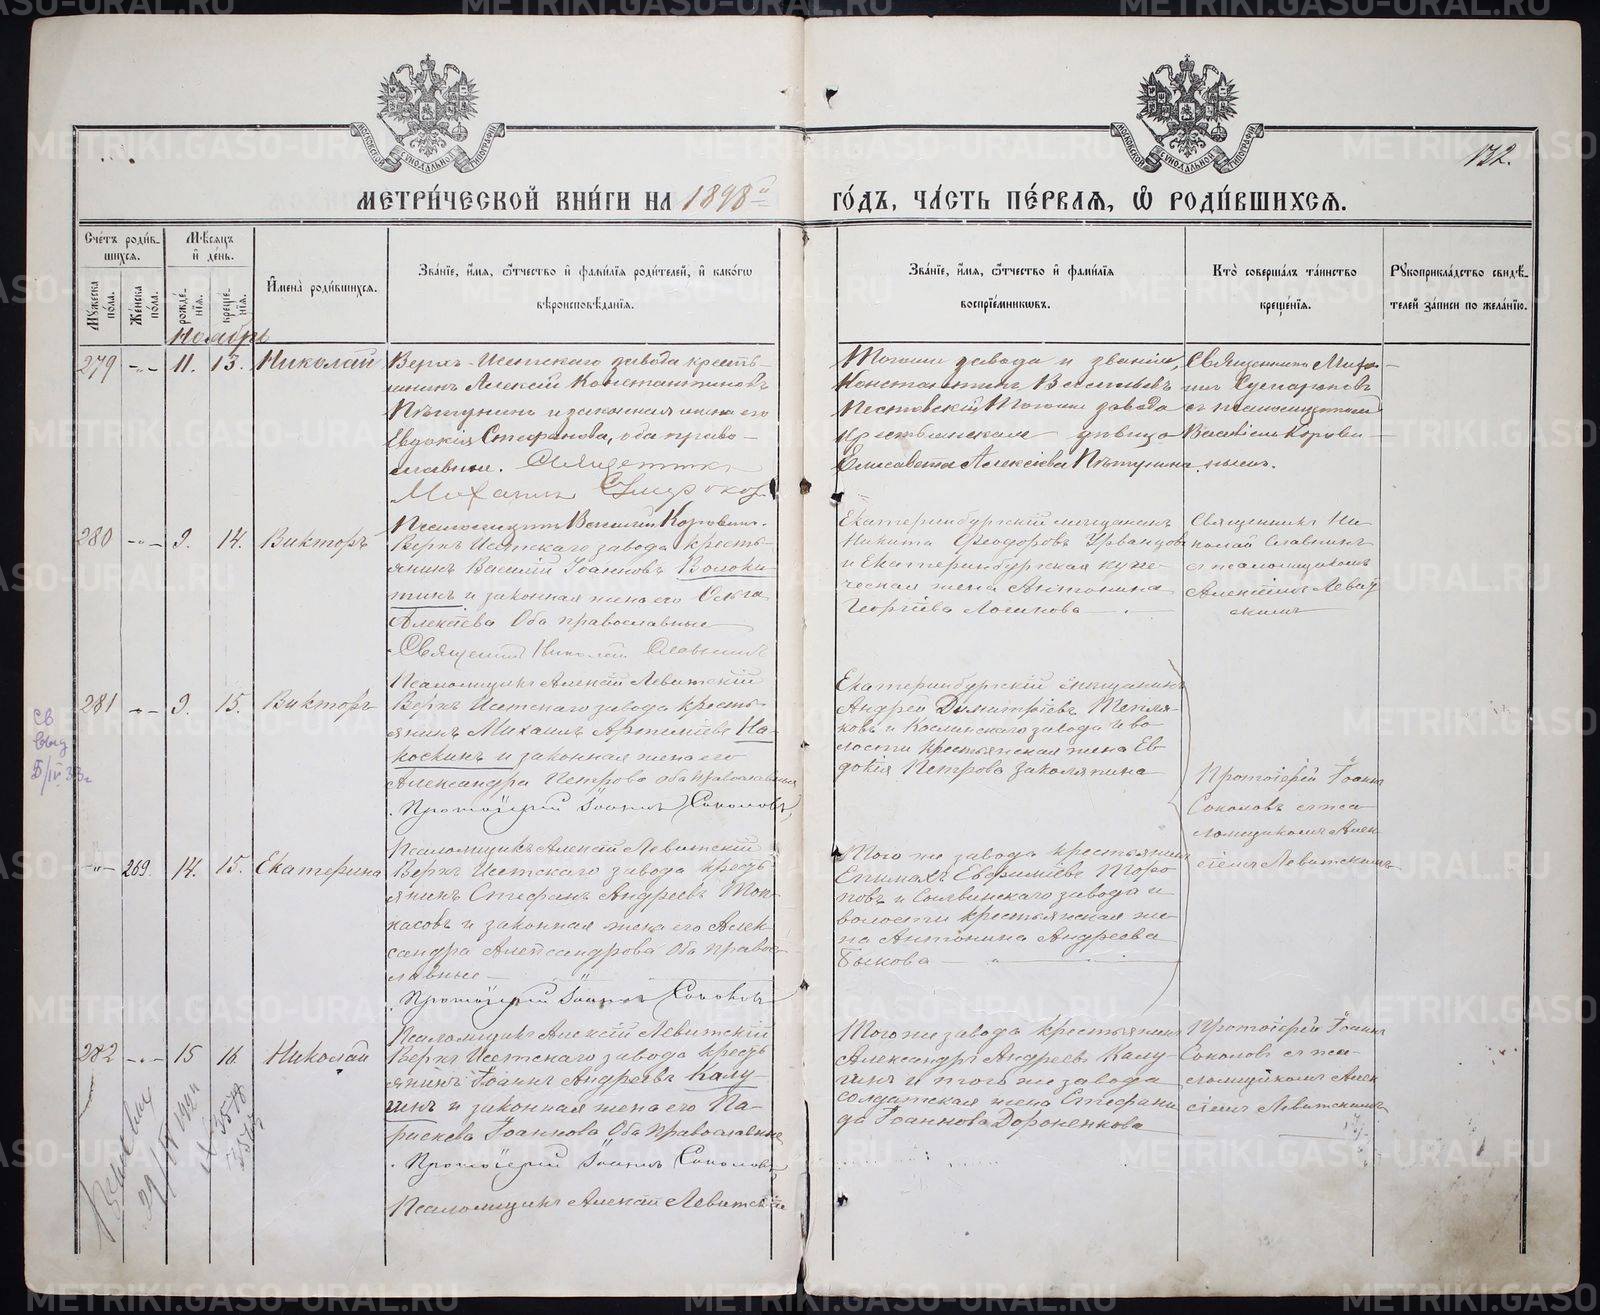 132.
МЕТРИ́ЧЕСКОЙ КНИ́ГИ НА 1898й ГО́ДЪ, ЧА́СТЬ ПЕ́РВАЯ, Ѡ РОДИ́ВШИХСЯ.
Сче́тъ роди́в-
шихся.
Му́жеска по́ла.
Же́нска по́ла.
Мѣ́сяцъ
и҆ де́нь.
рожде-
нія.
креще-
нія.
И҆мена̀ роди́вшихся.
Зва́нїе, и҆́мя, ѻ҆́тчество и҆ фамилїя роди́телей, и҆ како́гѡ
вѣроисповѣ́данїя.
Зва́нїе, и҆́мя, ѻ҆́тчество и҆ фамилїя
воспрїе́мниковъ.
Кто̀ соверша́лъ та́инство
креще́нїя.
Рꙋкоприкла́дство свидѣ́-
телей за́писи по жела́нїю.
Ноябрь
279 -"- 11. 13. Николай
Верхъ-Исетскаго завода кресть-
янинъ Алексѣй Константиновъ
Пѣтунинъ и законная жена его
Евдокія Стефанова, оба право-
славные. Священникъ
Михаилъ
Псаломщикъ Василій Коровинъ.
Того же завода и званія,
Константинъ Васильевъ
Пестовскій, Того же завода
крестьянская дѣвица
Елисавета Алексѣева Пѣтунина
Священникъ
съ псаломщикомъ
Василіемъ Корови-
нымъ.
280 -"- 9. 14. Викторъ
Верхъ Исетскаго завода кресть-
янинъ Василій Іоанновъ Волоки-
тинъ и законная жена его Ольга
Алексѣева Оба православные
Священникъ Николай Славнинъ
Псаломщикъ Алексій Левитскій
Екатеринбургскій мѣщанинъ
Никита Ѳеодоровъ Урванцовъ
и Екатеринбургская купе-
ческая жена Антонина
Георгіева Логинова
Священникъ Ни-
колай Славнинъ
съ псаломщикомъ
Алексіемъ Левит-
скимъ
281 -"- 9. 15. Викторъ
св
выд
5/IV 33г
Верхъ Исетскаго завода кресть-
янинъ Михаилъ Артеміевъ На-
коскинъ и законная жена его
Александра Петрова оба православные
Протоіерей Іоаннъ Соколовъ
Псаломщикъ Алексій Левитскій
Екатеринбургскій мѣщанинъ
Андрей Димитріевъ Тепля-
ковъ и Каслинскаго завода и во-
лости крестьянская жена Ев-
докія Петрова Закаляпина
Протоіерей Іоаннъ
Соколовъ съ пса-
ломщикомъ Алек-
сіемъ Левитскимъ
-"- 269. 14. 15. Екатерина
Верхъ Исетскаго завода кресть-
янинъ Стефанъ Андреевъ Топ-
касовъ и законная жена его Алек-
сандра Александрова Оба право-
славные
Протоіерей Іоаннъ Соколовъ
Псаломщикъ Алексій Левитскій
Того же завода крестьянинъ
Епимахъ Евфиміевъ Торо-
повъ и Сылвинскаго завода и
волости крестьянская же-
на Антонина Андреева
Быкова
282 -"- 15 16. Николай
Верхъ Исетскаго завода кресть-
янинъ Іоаннъ Андреевъ Калу-
гинъ и законная жена его Па-
раскева Іоаннова Оба православные
Протоіерей Іоаннъ Соколовъ
Псаломщикъ Алексій Левитскій
Того же завода крестьянинъ
Александръ Андреевъ Калу-
гинъ и того же завода
солдатская жена Стефани-
да Іоаннова Дороненкова
Протоіерей Іоаннъ
Соколовъ съ пса-
ломщикомъ Алек-
сіемъ Левитскимъ
METRIKI.GASO-URAL.RU